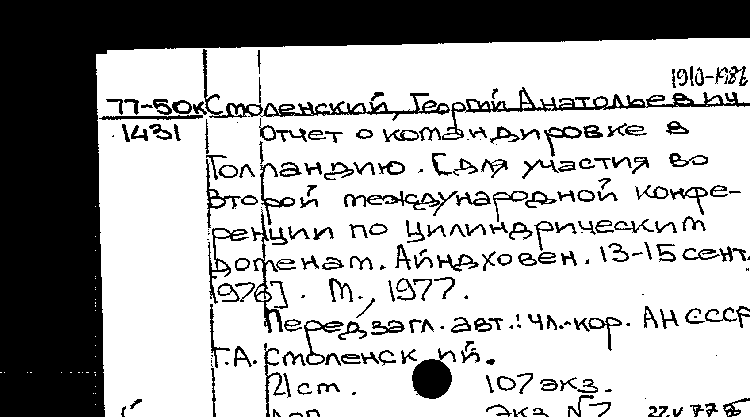 1910-1986
77-50к Смоленский, Георгий Анатольевич
1431 Отчет о командировке в
Голландию. [Для участия во
второй международной конфе-
ренции по цилиндрическим
доменам. Айндховен. 13-15 сент.
1976]. М., 1977.
Перед загл. авт.: чл.-кор. АН СССР
Г.А. Смоленский.
21 ст. 107 экз.
экз. №7 22.V.77